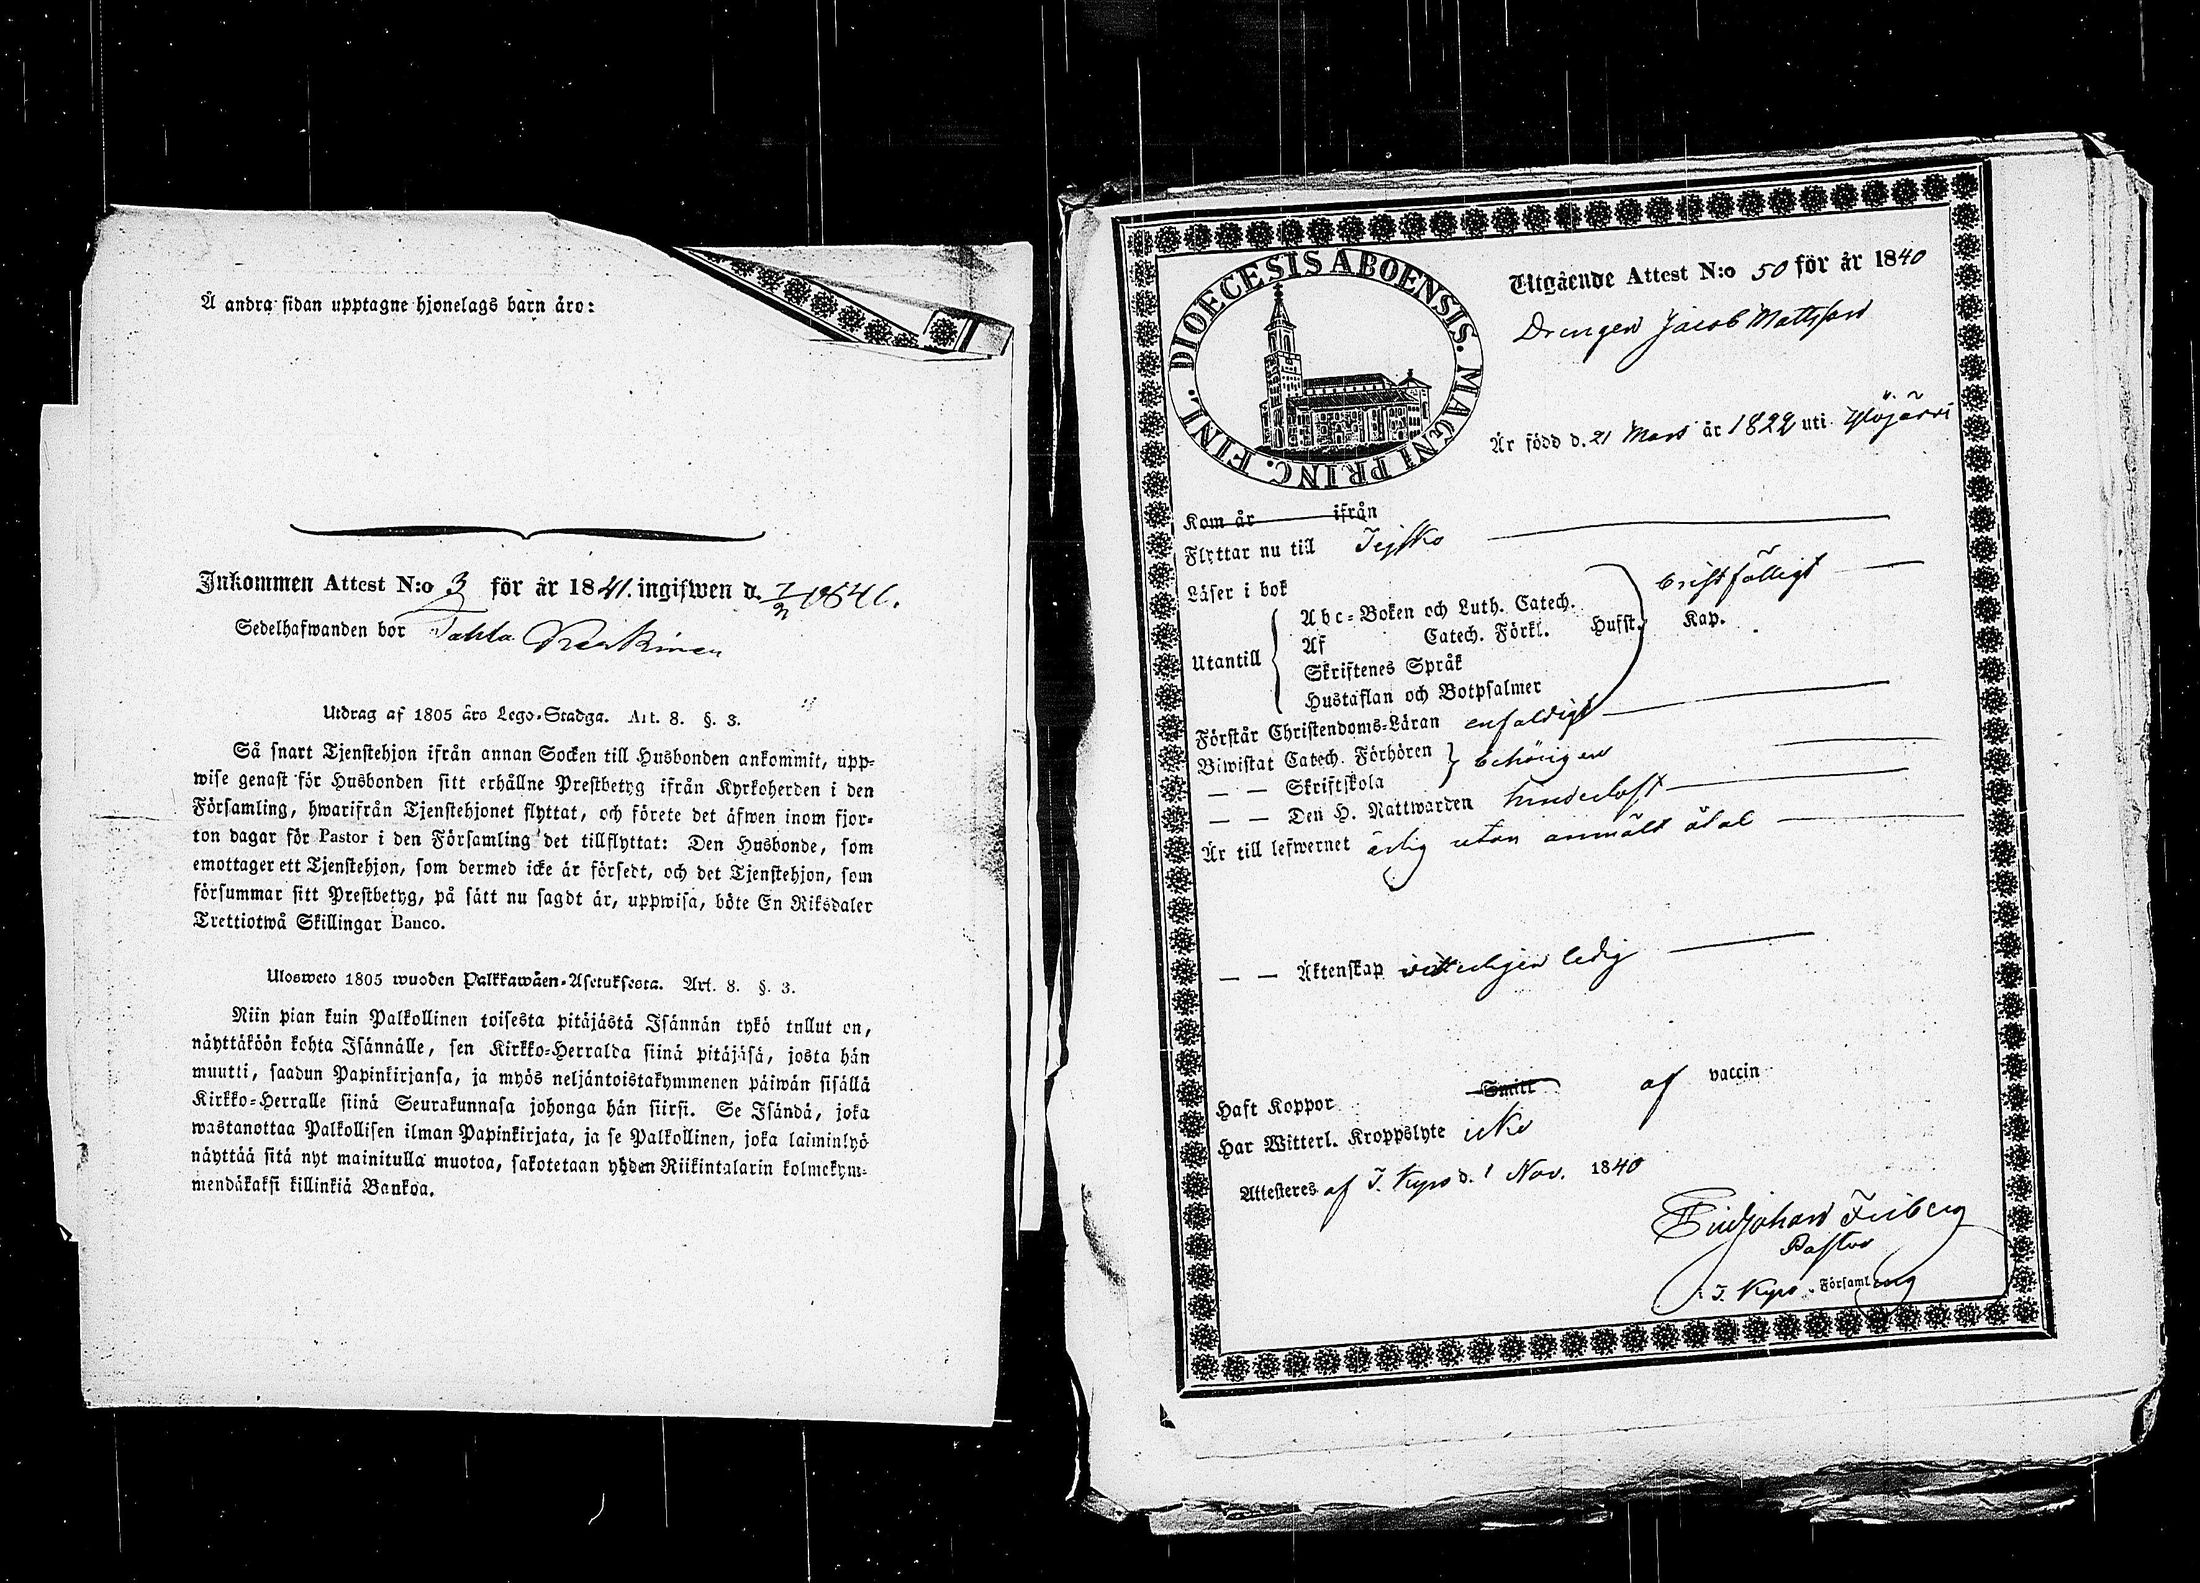 Å andra sidan upptagne hjonelags barn äro:
Inkommen Attest N:o 3 för år 1841. ingifwen d. 7/2 1841.
Sedelhafwanden bor Tahla
Utdrag af 1805 års Lego-Stadga. Art. 8. §. 3.
Så snart Tjenstehjon ifrån annan Socken till Husbonden ankommit, upp-
wise genast för Husbonden sitt erhållne Prestbetyg ifrån Kyrkoherden i den
Församling, hwarifrån Tjenstehjonet flyttat, och förete det äfwen inom fjor-
ton dagar för Pastor i den Församling det tillflyttat: Den Husbonde, som
emottager ett Tjenstehjon, som dermed icke är försedt, och det Tjenstehjon, som
försummar sitt Prestbetyg, på sätt nu sagdt är, uppwisa, böte En Riksdaler
Trettiotwå Skillingar Banco.
Ulosweto 1805 wuoden Palkkawäen-Asetuksesta. Art. 8. §. 3.
Niin pian kuin Palkollinen toisesta pitäjästä Isännän tykö tullut on,
näyttäköön kohta Isännälle, sen Kirkko-Herralda siinä pitäjäsä, josta hän
muutti, saadun Papinkirjansa, ja myös neljäntoistakymmenen päiwän sisällä
Kirkko-Herralle siinä Seurakunnasa johonga hän siirsi. Se Isändä, joka
wastanottaa Palkollisen ilman Papinkirjata, ja se Palkollinen, joka laiminlyö
näyttää sitä nyt mainitulla muotoa, sakotetaan yhden Riikintalarin kolmekym-
mendäkaksi killinkiä Bankoa.
DIOECESIS ABOENSIS. MAGNI PRINC. FINL.
Utgående Attest N:o 50 för år 1840
Drengen Jacob Mattsson
Är född d. 21 Mars år 1822 uti Ylöjärvi
Kom år ifrån
Flyttar nu till Teisko
Läser i bok bristfälligt
Utantill
Abc-Boken och Luth. Catech.
Af Catech. Förkl. Husst. Kap.
Skriftenes Språk
Hustaflan och Botpsalmer
Förstår Christendoms-Läran enfaldigt
Biwistat Catech. Förhören behörigen
— — Skriftskola
— — Den H. Nattwarden hinderlöst
Är till lefwernet ärlig utan anmäldt åtal
— — Äktenskap witterligen ledig
Haft Koppor Smitt af vaccin
Har Witterl. Kroppslyte icke
Attesteres af T. Kyro d. 1 Nov. 1840
Johan Friberg
Pastor
i T. Kyro Församling